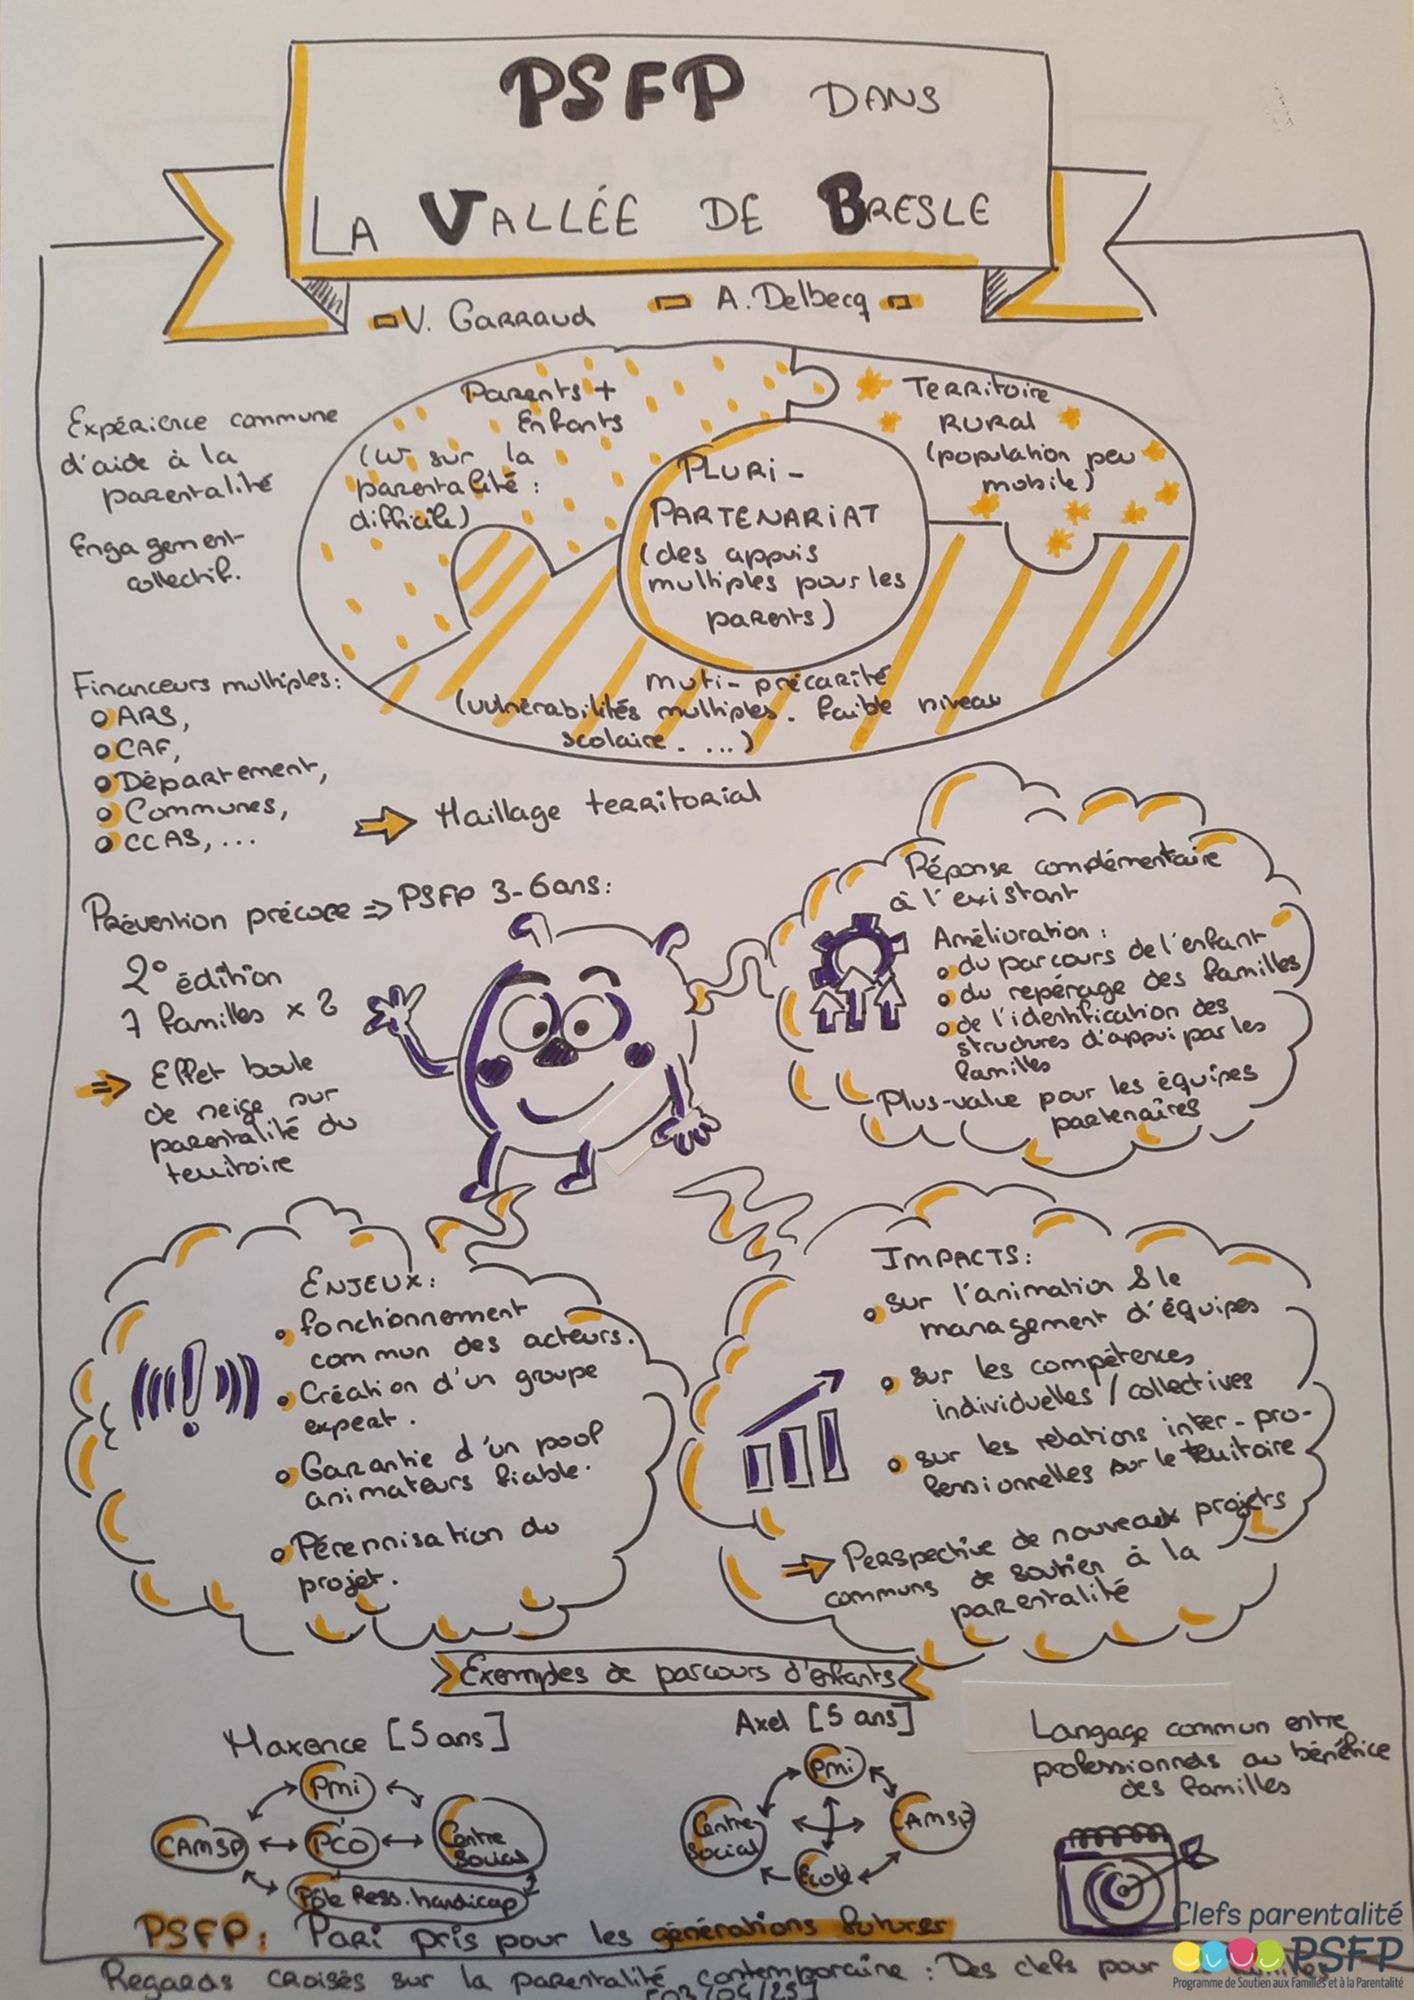 PSFP DANS
LA VALLÉE DE BRESLE
V. GARRAUD A. Delbecq
Expérience commune
d'aide à la
parentalité
Engagement
collectif.
Parents +
Enfants
(W sur la
parentalité :
difficile)
TERRITOIRE
RURAL
(population peu
mobile)
PLURI-
PARTENARIAT
(des appuis
multiples pour les
parents)
muti-précarité
(vulnérabilités multiples. faible niveau
scolaire. ...)
Financeurs multiples:
ARS,
CAF,
Département,
Communes,
CCAS, ...
Maillage territorial
Prévention précoce => PSFP 3-6ans:
2° édition
7 familles x 2
Effet boule
de neige sur
parentalité du
territoire
Réponse complémentaire
à l'existant
Amélioration :
du parcours de l'enfant
du repérage des familles
de l'identification des
structures d'appui par les
familles
Plus-value pour les équipes
partenaires
ENJEUX:
fonctionnement
commun des acteurs.
Création d'un groupe
expert.
Garantie d'un pool
animateurs fiable.
Pérennisation du
projet.
IMPACTS:
sur l'animation & le
management d'équipes
sur les compétences
individuelles / collectives
sur les relations inter-pro-
fessionnelles sur le territoire
Perspective de nouveaux projets
communs de soutien à la
parentalité
Exemples de parcours d'enfants
Maxence [5 ans]
PMI
CAMSP
PCO
Centre
Social
Pôle Ress. handicap
Axel [5 ans]
PMI
Centre
Social
CAMSP
École
Langage commun entre
professionnels au bénéfice
des familles
PSFP: Pari pris pour les générations futures
Regards croisés sur la parentalité contemporaine : Des clefs pour
[03/04/25]
Clefs parentalité
PSFP
Programme de Soutien aux Familles et à la Parentalité